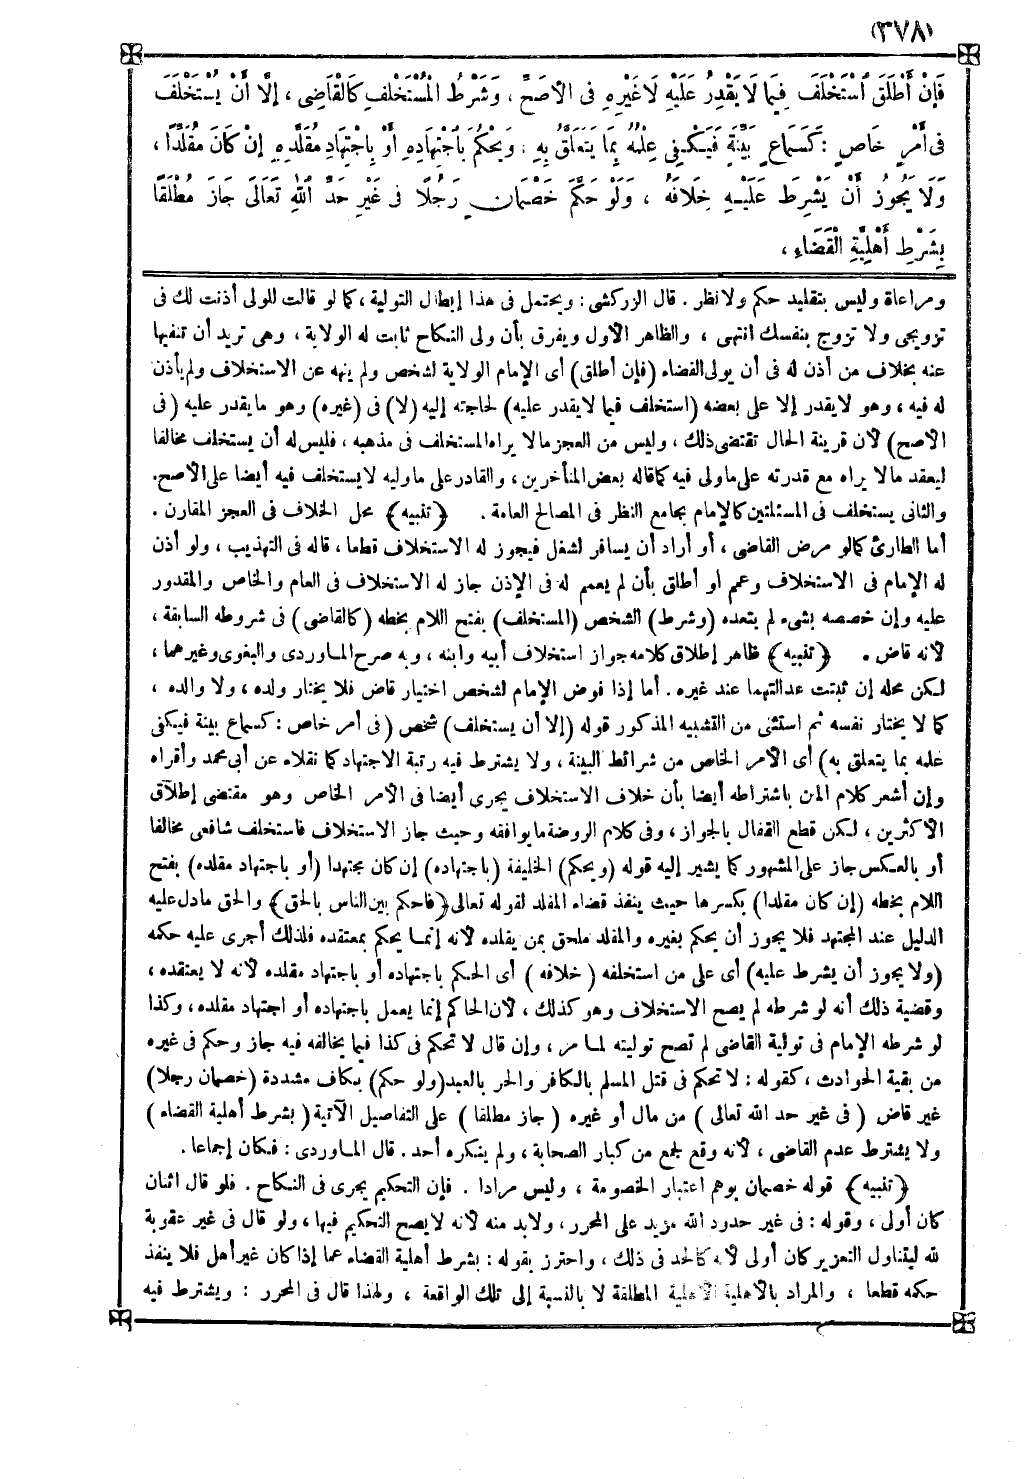 (٣٧٨)
فَإِنْ أَطْلَقَ اسْتَخْلَفَ فِيمَا لَا يَقْدِرُ عَلَيْهِ لَا غَيْرِهِ فِى الْأَصَحِّ ، وَشَرْطُ الْمُسْتَخْلَفِ كَالْقَاضِى ، إِلَّا أَنْ يُسْتَخْلَفَ
فِى أَمْرٍ خَاصٍّ : كَسَمَاعِ بَيِّنَةٍ فَيَكْفِى عِلْمُهُ بِمَا يَتَعَلَّقُ بِهِ . وَيَحْكُمُ بِاجْتِهَادِهِ أَوْ بِاجْتِهَادِ مُقَلَّدِهِ إِنْ كَانَ مُقَلِّدًا ،
وَلَا يَجُوزُ أَنْ يَشْرِطَ عَلَيْهِ خِلَافَهُ ، وَلَوْ حَكَّمَ خَصْمَانِ رَجُلًا فِى غَيْرِ حَدِّ اللهِ تَعَالَى جَازَ مُطْلَقًا
بِشَرْطِ أَهْلِيَّةِ الْقَضَاءِ ،
ومراعاة وليس بتقليد حكم ولا نظر . قال الزركشى : ويحتمل فى هذا إبطال التولية ، كما لو قالت للولى أذنت لك فى
تزويجى ولا تزوج بنفسك انتهى ، والظاهر الأول ويفرق بأن ولى النكاح ثابت له الولاية ، وهى تريد أن تنفيها
عنه بخلاف من أذن له فى أن يولى القضاء (فإن أطلق) أى الإمام الولاية لشخص ولم ينهه عن الاستخلاف ولم يأذن
له فيه ، وهو لا يقدر إلا على بعضه (استخلف فيما لا يقدر عليه) لحاجته إليه (لا) فى (غيره) وهو ما يقدر عليه (فى
الأصح) لأن قرينة الحال تقتضى ذلك ، وليس من العجز ما لا يراه المستخلف فى مذهبه ، فليس له أن يستخلف مخالفا
ليعقد ما لا يراه مع قدرته على ما ولى فيه كما قاله بعض المتأخرين ، والقادر على ما وليه لا يستخلف فيه أيضا على الأصح.
والثانى يستخلف فى المسئلتين كالإمام بجامع النظر فى المصالح العامة . ﴿تنبيه﴾ محل الخلاف فى العجز المقارن .
أما الطارئ كما لو مرض القاضى ، أو أراد أن يسافر لشغل فيجوز له الاستخلاف قطعا ، قاله فى التهذيب ، ولو أذن
له الإمام فى الاستخلاف وعمم أو أطلق بأن لم يعمم له فى الإذن جاز له الاستخلاف فى العام والخاص والمقدور
عليه وإن خصصه بشىء لم يتعده (وشرط) الشخص (المستخلف) بفتح اللام بخطه (كالقاضى) فى شروطه السابقة ،
لأنه قاض . ﴿تنبيه﴾ ظاهر إطلاق كلامه جواز استخلاف أبيه وابنه ، وبه صرح الماوردى والبغوى وغيرهما ،
لكن محله إن ثبتت عدالتهما عند غيره . أما إذا فوض الإمام لشخص اختيار قاض فلا يختار ولده ، ولا والده ،
كما لا يختار نفسه ثم استثنى من التشبيه المذكور قوله (إلا أن يستخلف) شخص (فى أمر خاص : كسماع بينة فيكفى
علمه بما يتعلق به) أى الأمر الخاص من شرائط البينة ، ولا يشترط فيه رتبة الاجتهاد كما نقلاه عن أبى محمد وأقراه
وإن أشعر كلام المتن باشتراطه أيضا بأن خلاف الاستخلاف يجرى أيضا فى الأمر الخاص وهو مقتضى إطلاق
الأكثرين ، لكن قطع القفال بالجواز ، وفى كلام الروضة ما يوافقه وحيث جاز الاستخلاف فاستخلف شافعى مخالفا
أو بالعكس جاز على المشهور كما يشير إليه قوله (ويحكم) الخليفة (باجتهاده) إن كان مجتهدا (أو باجتهاد مقلده) بفتح
اللام بخطه (إن كان مقلدا) بكسرها حيث ينفذ قضاء المقلد لقوله تعالى ﴿فاحكم بين الناس بالحق﴾ والحق ما دل عليه
الدليل عند المجتهد فلا يجوز أن يحكم بغيره والمقلد ملحق بمن يقلده لأنه إنما يحكم بمعتقده فلذلك أجرى عليه حكمه
(ولا يجوز أن يشرط عليه) أى على من استخلفه (خلافه) أى الحكم باجتهاده أو باجتهاد مقلده لأنه لا يعتقده ،
وقضية ذلك أنه لو شرطه لم يصح الاستخلاف وهو كذلك ، لأن الحاكم إنما يعمل باجتهاده أو اجتهاد مقلده ، وكذا
لو شرطه الإمام فى تولية القاضى لم تصح توليته لما مر ، وإن قال لا تحكم فى كذا فيما يخالفه فيه جاز وحكم فى غيره
من بقية الحوادث ، كقوله : لا تحكم فى قتل المسلم بالكافر والحر بالعبد (ولو حكم) بكاف مشددة (خصمان رجلا)
غير قاض ( فى غير حد الله تعالى ) من مال أو غيره ( جاز مطلقا ) على التفاصيل الآتية ( بشرط أهلية القضاء )
ولا يشترط عدم القاضى ، لأنه وقع لجمع من كبار الصحابة ، ولم ينكره أحد . قال الماوردى : فكان إجماعا .
﴿تنبيه﴾ قوله خصمان يوهم اعتبار الخصومة ، وليس مرادا . فإن التحكيم يجرى فى النكاح . فلو قال اثنان
كان أولى ، وقوله : فى غير حدود الله مزيد على المحرر ، ولابد منه لأنه لا يصح التحكيم فيها ، ولو قال فى غير عقوبة
لله ليتناول التعزير كان أولى لأنه كالحد فى ذلك ، واحترز بقوله : بشرط أهلية القضاء عما إذا كان غير أهل فلا ينفذ
حكمه قطعا ، والمراد بالأهلية الأهلية المطلقة لا بالنسبة إلى تلك الواقعة ، ولهذا قال فى المحرر : ويشترط فيه